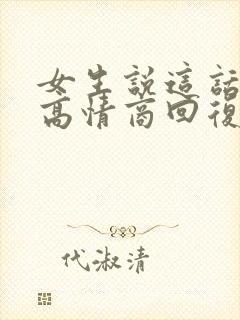 女生說這話
高情商回復
代淑清